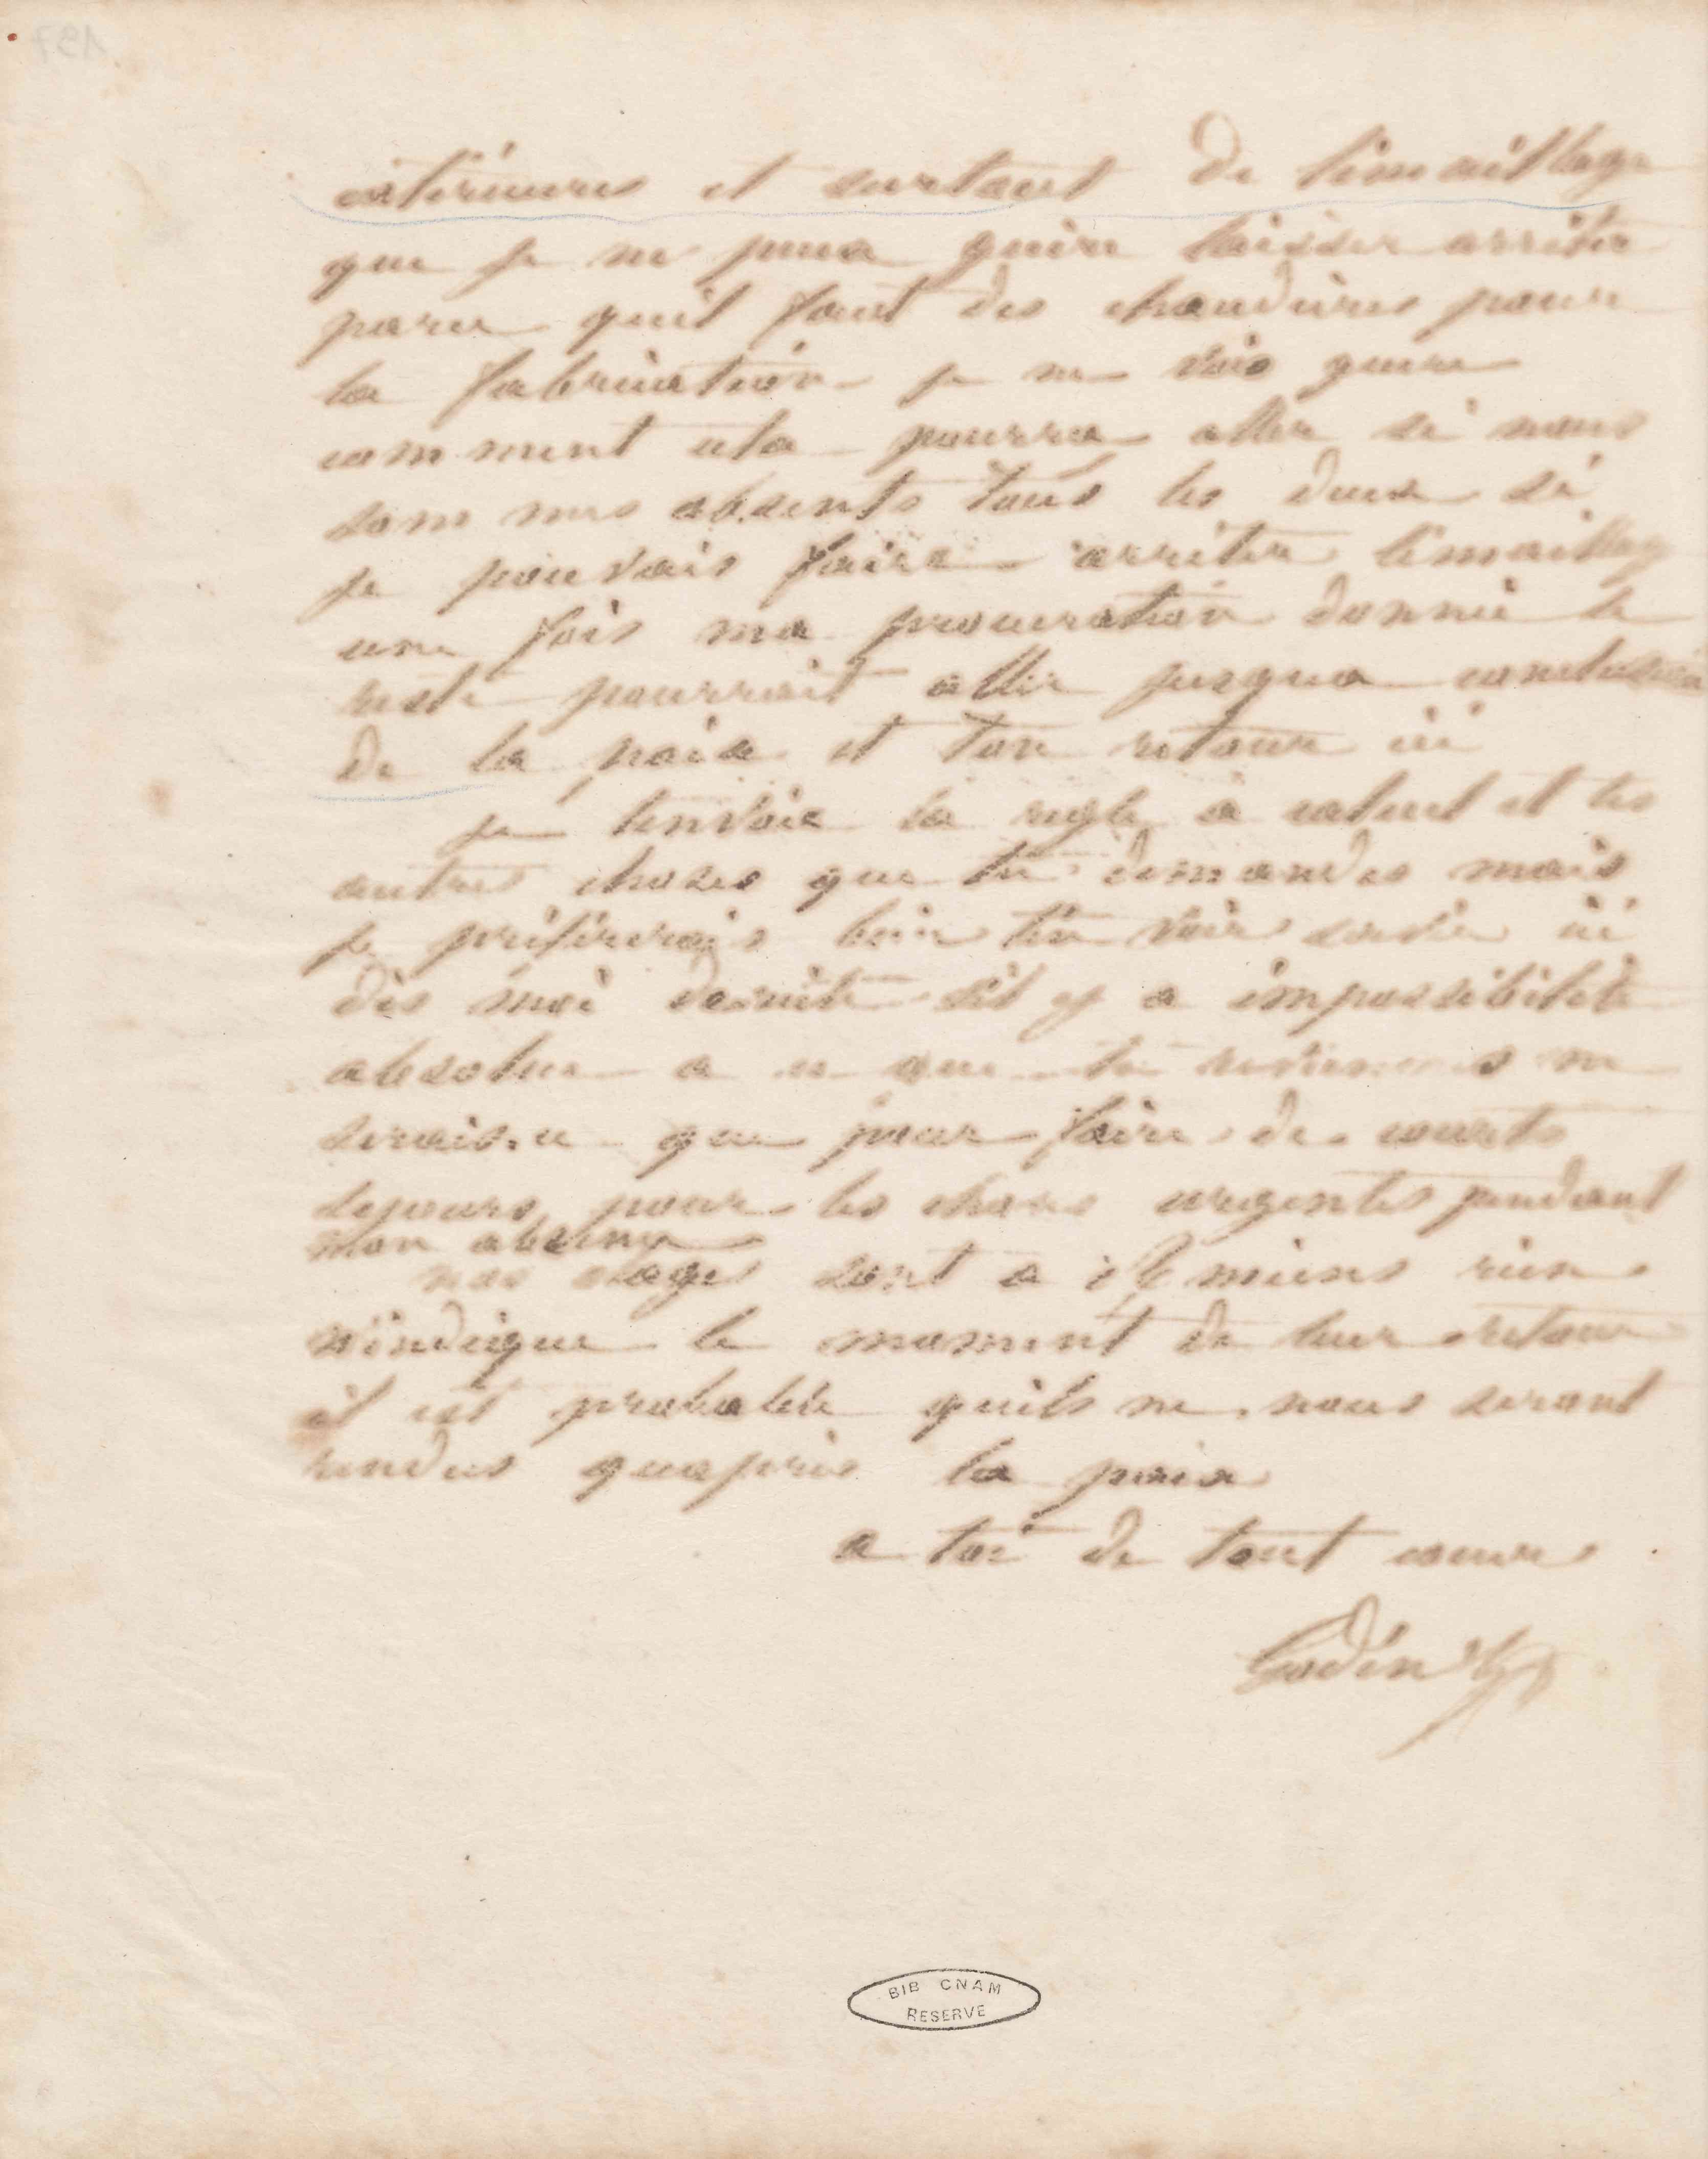 extérieures et surtout de lémaillage
que je ne peux guère laisser arrêter
parce quil faut des chaudières pour
la fabrication je ne vois guere
comment cela pourra aller si nous
sommes absents tous les deux si
je pouvais faire arrêter lémaillage
une fois ma procuration donnée le
reste pourrait aller jusqua conclusion
de la paix et ton retour ici
je tenvoie la regle à calcul et les
autres choses que tu demandes mais
je préférerais bien te voir ici
dis moi de suite sil y a impossibilité
absolue a ce que tu reviennes ne
serais.ce que pour faire de courts
sejours pour les choses urgentes pendant
mon absence
nos otages sont a Amiens rien
n'indique le moment de leur retour
il est probable quils ne nous seront
rendus quaprès la paix
a toi de tout coeur
Godin
BIB CNAM
RESERVE
197